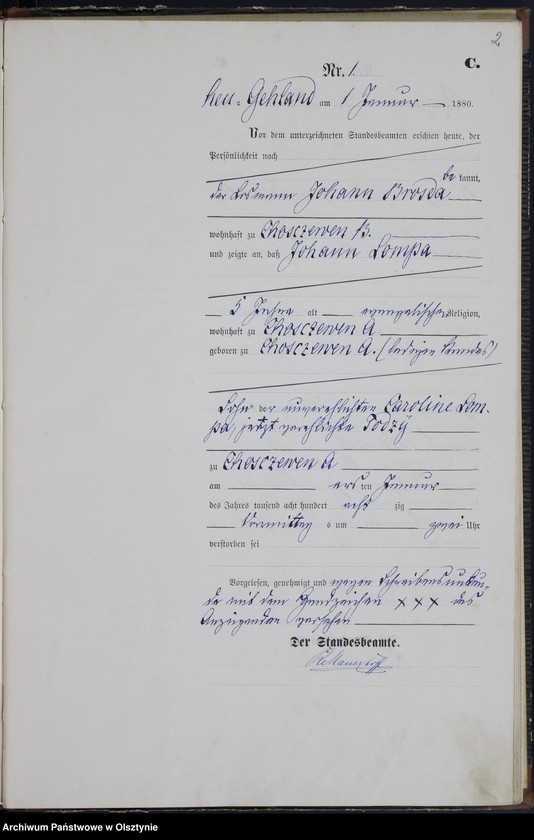 2
C.
Nr. 1.
Neu-Gehland am 1 Januar 1880.
Vor dem unterzeichneten Standesbeamten erschien heute, der
Persönlichkeit nach
be kannt,
der Losmann Johann Brosda
wohnhaft zu Choszewen B.
und zeigte an, daß Johann Lompa
5 Jahre alt evangelischer Religion,
wohnhaft zu Choszewen A
geboren zu Choszewen A. (ledigen Standes)
Sohn der unverehlichten Caroline Lom-
pa, jetzt verehlichte Todzÿ
zu Choszewen A
am ersten Januar
des Jahres tausend acht hundert acht zig
Vormittag s um zwei Uhr
verstorben sei
Vorgelesen, genehmigt und wegen Schreibensunkun-
de mit dem Handzeichen XXX des
Anzeigenden versehen
Der Standesbeamte.
Archiwum Państwowe w Olsztynie